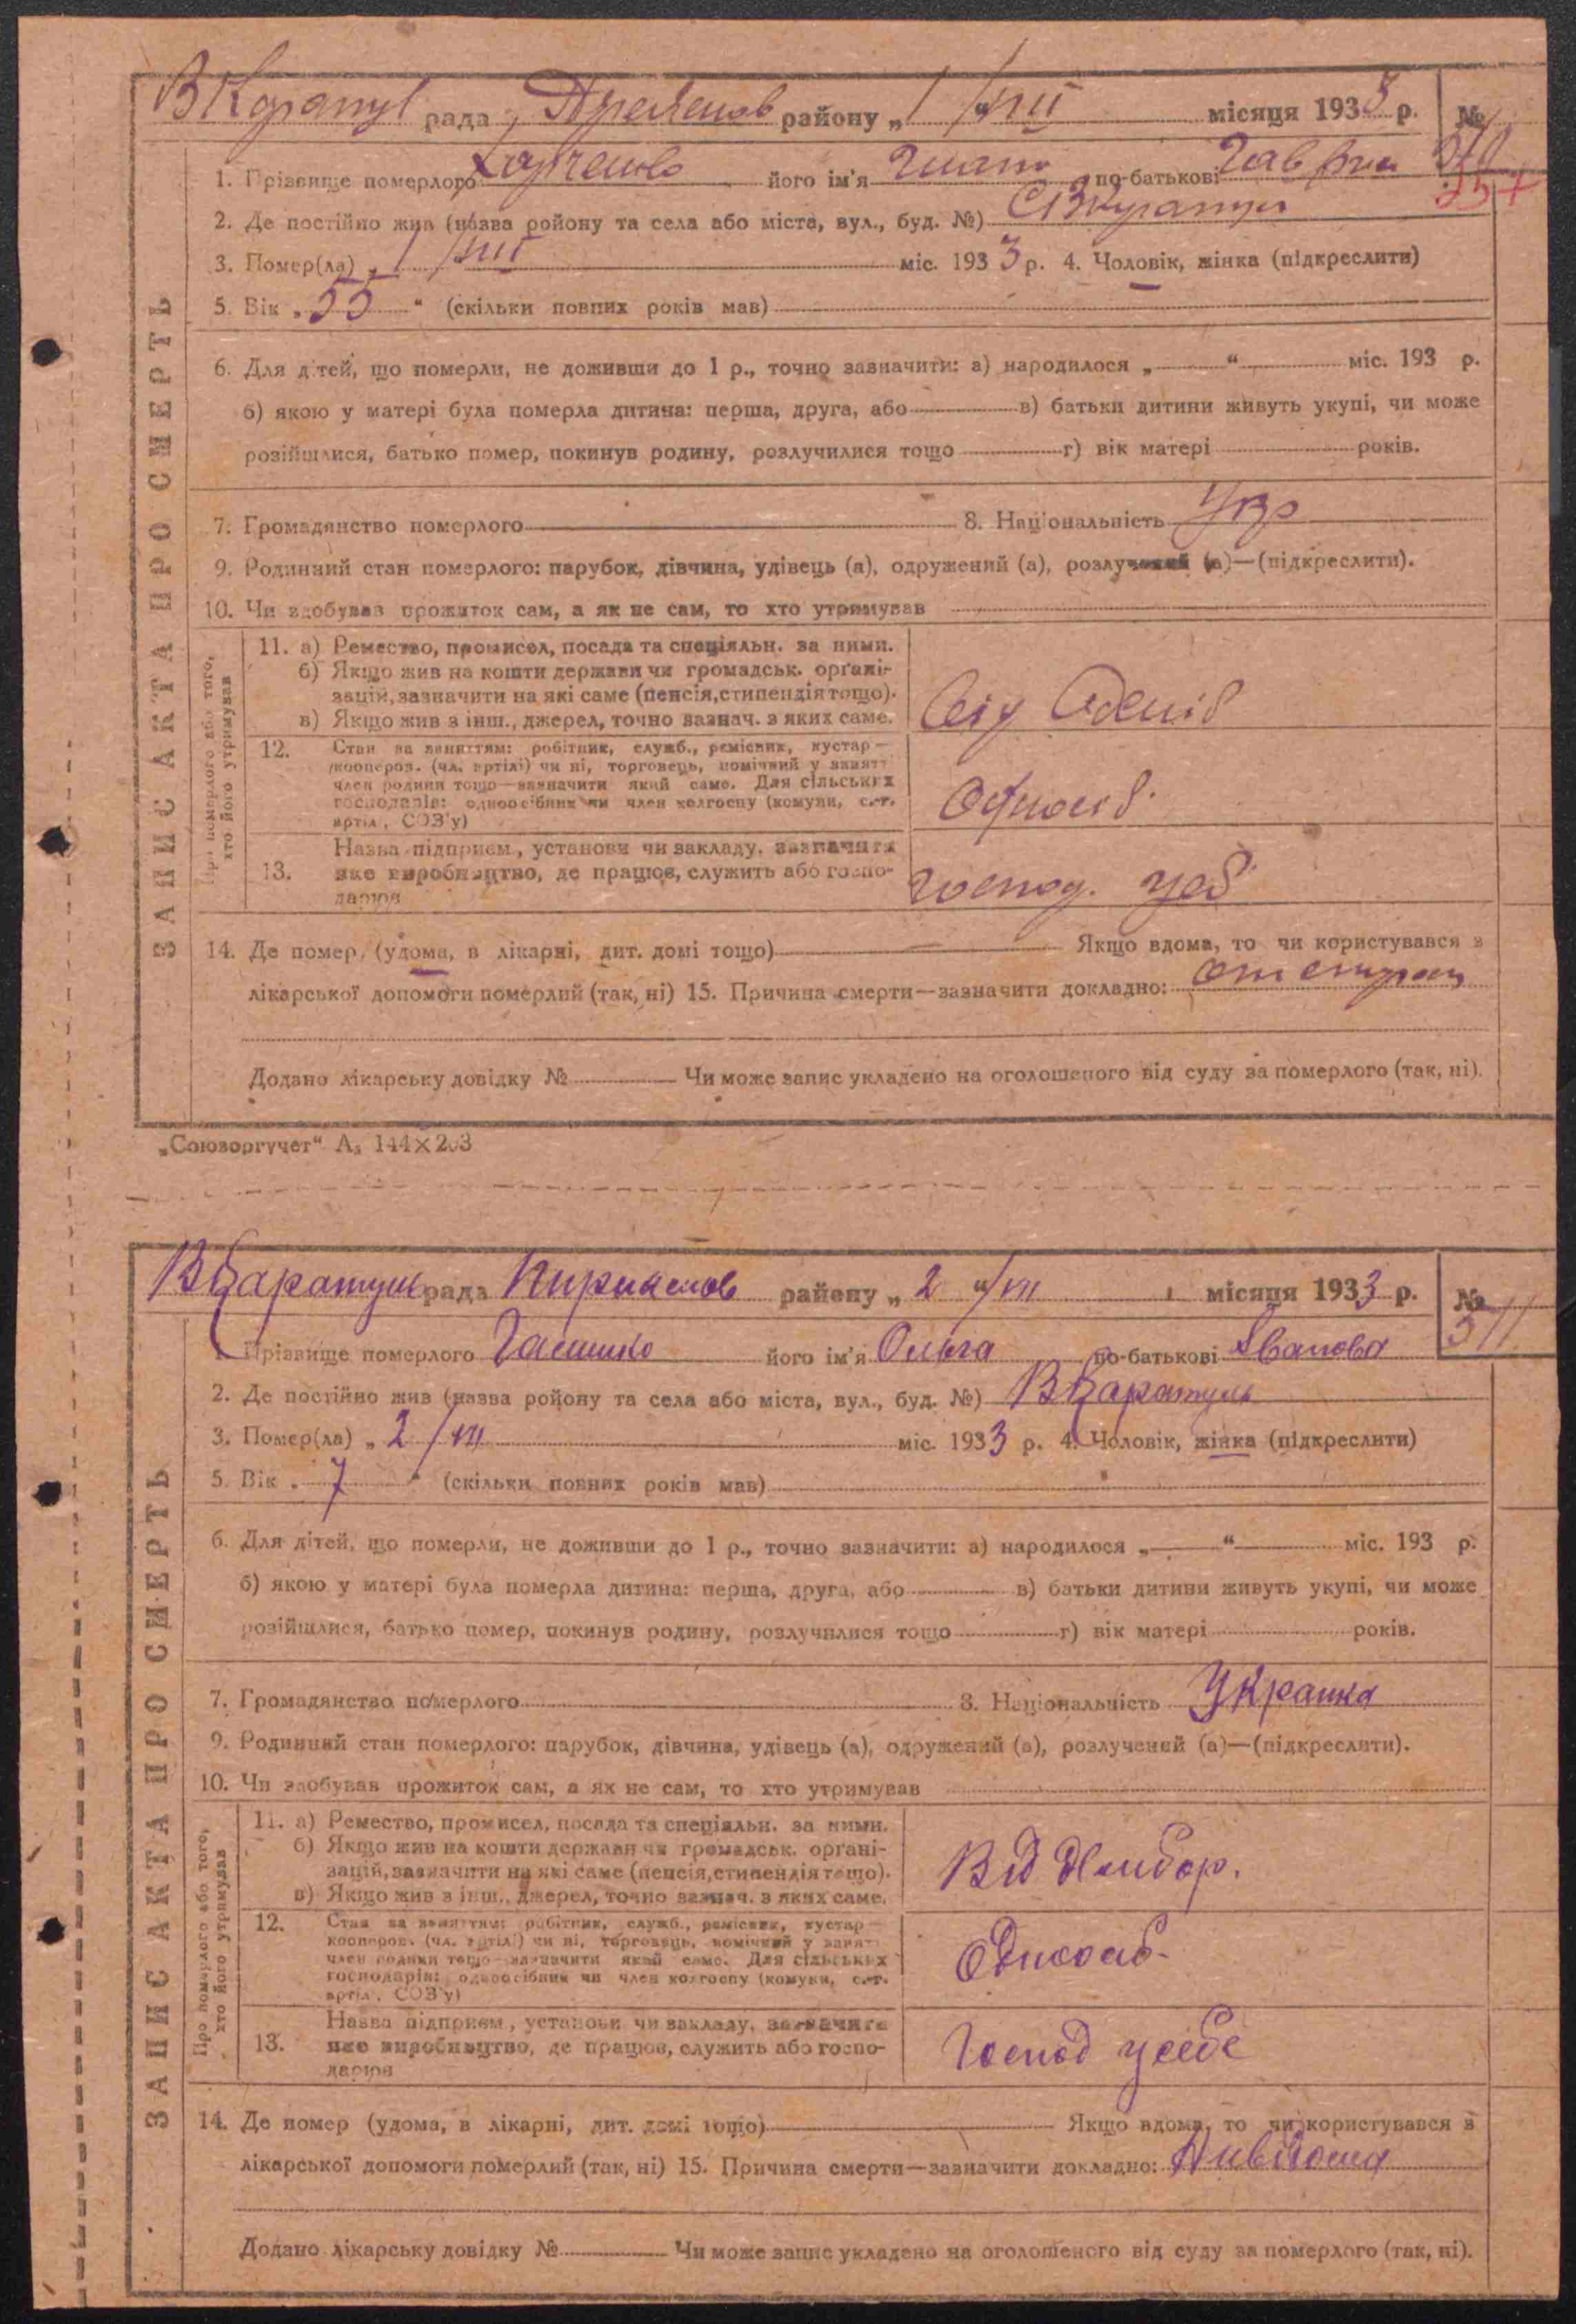 В Каратул рада, району „ 1 “ / VIII місяця 1933 р. №
310
257
1. Прізвище померлого його ім'я по-батькові Гаврил
2. Де постійно жив (назва ройону та села або міста, вул., буд. №)
3. Помер(ла) „ 1 / VIII міс. 193 3 р. 4. Чоловік, жінка (підкреслити)
5. Вік „ 55 “ (скільки повних років мав)
6. Для дітей, що померли, не доживши до 1 р., точно зазначити: а) народилося „ “ міс. 193 р.
б) якою у матері була померла дитина: перша, друга, або в) батьки дитини живуть укупі, чи може
розійшлися, батько помер, покинув родину, розлучилися тощо г) вік матері років.
7. Громадянство померлого 8. Національність Укр
9. Родинний стан померлого: парубок, дівчина, удівець (а), одружений (а), розлучений (а)—(підкреслити).
10. Чи здобував прожиток сам, а як не сам, то хто утримував
ЗАПИС АКТА ПРО СМЕРТЬ
Про померлого або того,
хто його утримував
11. а) Ремество, промисел, посада та спеціяльн. за ними.
б) Якщо жив на кошти держави чи громадськ. органі-
зацій, зазначити на які саме (пенсія, стипендія тощо).
в) Якщо жив з інш., джерел, точно зазнач. з яких саме.
12. Стан за заняттям: робітник, служб., ремісник, кустар—
кооперов. (чл. артілі) чи ні, торговець, помічний у занятт
член родини тощо—зазначити який саме. Для сільських
господарів: одноосібник чи член колгоспу (комуни, с.-г.
артіл., СОЗ'у)
Одноосіб.
13. Назва підприєм., установи чи закладу, зазначити
яке виробництво, де працює, служить або госпо-
дарює
господ. у себ
14. Де помер, (удома, в лікарні, дит. домі тощо) Якщо вдома, то чи користувався з
лікарської допомоги померлий (так, ні) 15. Причина смерти—зазначити докладно: от старец
Додано лікарську довідку № Чи може запис укладено на оголошеного від суду за померлого (так, ні).
„Союзоргучет“ А₅ 144×203
В Каратуль рада району „ 2 “ / VIII місяця 1933 р. №
311
1. Прізвище померлого його ім'я Ольга по-батькові Іванова
2. Де постійно жив (назва ройону та села або міста, вул., буд. №) В Каратуль
3. Помер(ла) „ 2 / VIII міс. 193 3 р. 4. Чоловік, жінка (підкреслити)
5. Вік „ 7 “ (скільки повних років мав)
6. Для дітей, що померли, не доживши до 1 р., точно зазначити: а) народилося „ “ міс. 193 р.
б) якою у матері була померла дитина: перша, друга, або в) батьки дитини живуть укупі, чи може
розійшлися, батько помер, покинув родину, розлучилися тощо г) вік матері років.
7. Громадянство померлого 8. Національність Українка
9. Родинний стан померлого: парубок, дівчина, удівець (а), одружений (а), розлучений (а)—(підкреслити).
10. Чи здобував прожиток сам, а як не сам, то хто утримував
ЗАПИС АКТА ПРО СМЕРТЬ
Про померлого або того,
хто його утримував
11. а) Ремество, промисел, посада та спеціяльн. за ними.
б) Якщо жив на кошти держави чи громадськ. органі-
зацій, зазначити на які саме (пенсія, стипендія тощо).
в) Якщо жив з інш., джерел, точно зазнач. з яких саме.
Від
12. Стан за заняттям: робітник, служб., ремісник, кустар—
кооперов. (чл. артілі) чи ні, торговець, помічний у занятт
член родини тощо—зазначити який саме. Для сільських
господарів: одноосібник чи член колгоспу (комуни, с.-г.
артіл., СОЗ'у)
Одноосіб.
13. Назва підприєм., установи чи закладу, зазначити
яке виробництво, де працює, служить або госпо-
дарює
Господ у себе
14. Де помер (удома, в лікарні, дит. домі тощо) Якщо вдома, то чи користувався з
лікарської допомоги померлий (так, ні) 15. Причина смерти—зазначити докладно: Нивідома
Додано лікарську довідку № Чи може запис укладено на оголошеного від суду за померлого (так, ні).